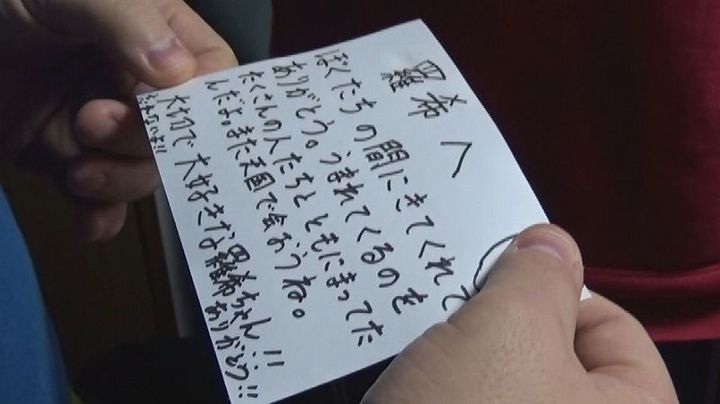 羅希へ
ぼくたちの間にきてくれて
ありがとう。うまれてくるのを
たくさんの人たちとともにまってた
んだよ。また天国で会おうね。
大切で大好きな羅希ちゃん!!
ありがとう!!